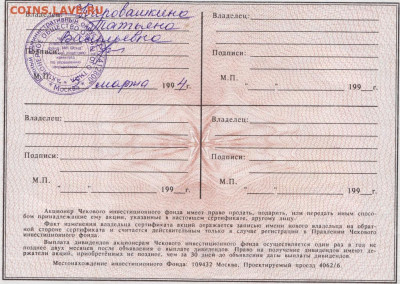 COINS.LAVE.RU
Владелец:
Татьяна
Васильевна
Подписи:
М.П.
марта 1994 г.
Владелец:
Подписи:
М.П. "____" ________ 199__ г.
Владелец:
Подписи:
М.П. "____" ________ 199__ г.
Владелец:
Подписи:
М.П. "____" ________ 199__ г.
Акционер Чекового инвестиционного фонда имеет право продать, подарить, или передать иным спосо-
бом принадлежащие ему акции, указанные в настоящем сертификате, другому лицу.
Факт изменения владельца сертификата акций держателя записью имени нового владельца на обрат-
ной стороне сертификата и считается действительным только в случае регистрации в Правлении Чекового
инвестиционного фонда.
Выплата дивидендов акционерам Чекового инвестиционного фонда осуществляется один раз в год не
позднее двух месяцев после объявления о выплате дивидендов. Право на получение дивидендов имеют дер-
жатели акций, приобретённые не позднее, чем за 30 дней до объявления даты выплаты дивидендов.
Местонахождение инвестиционного Фонда: 109432 Москва, Проектируемый проезд 4062/6.